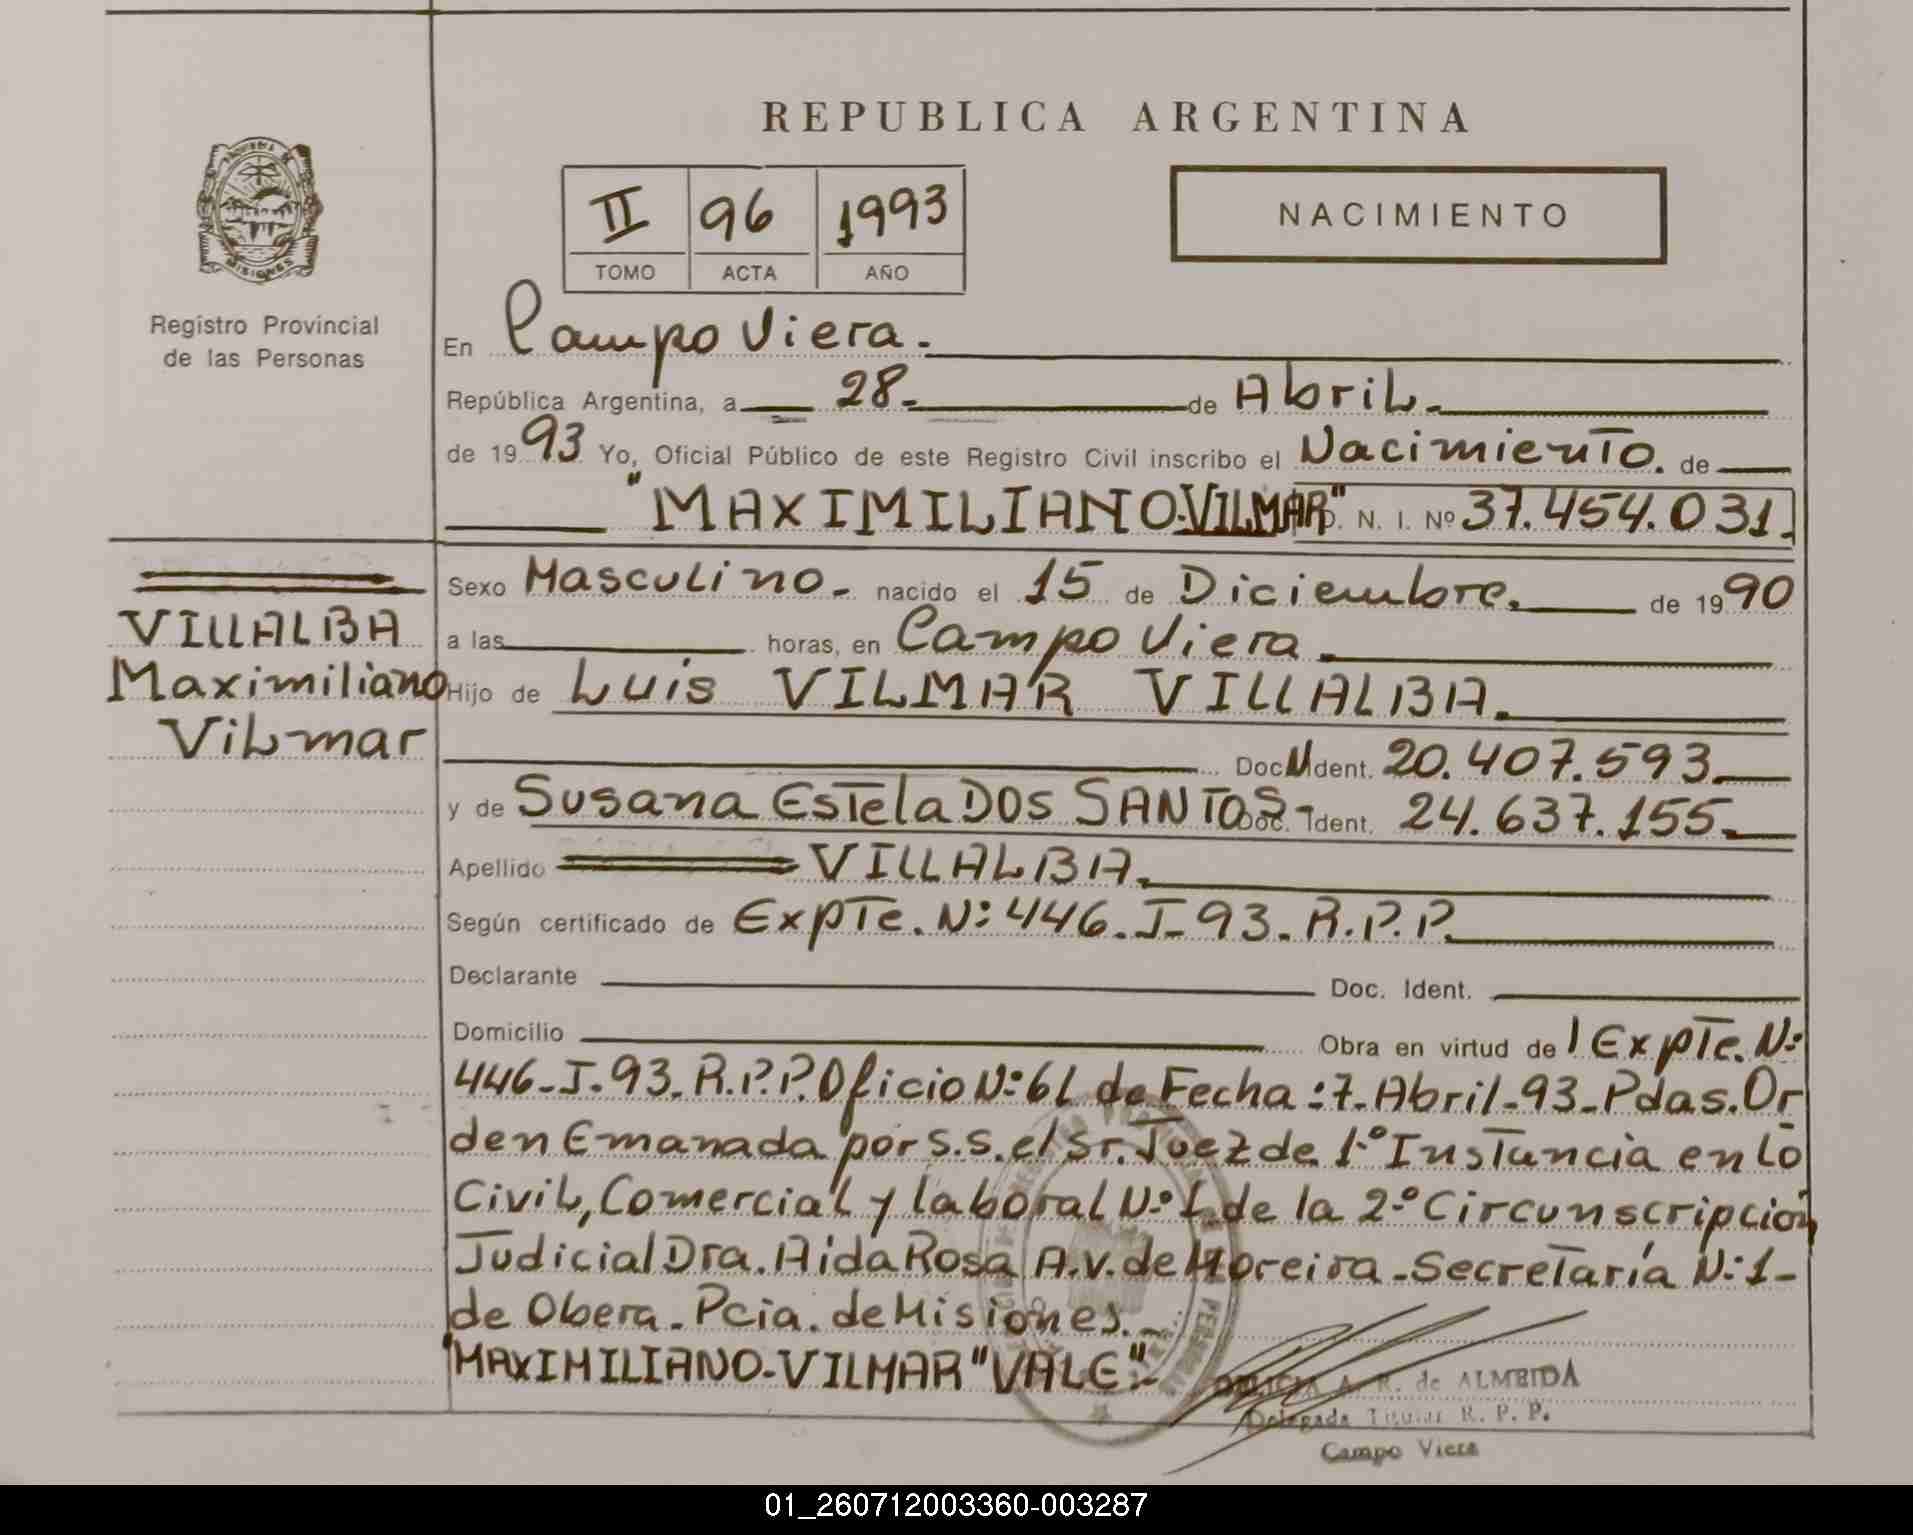 REPUBLICA ARGENTINA
II 96 1993
TOMO ACTA AÑO
NACIMIENTO
PROVINCIA DE
MISIONES
Registro Provincial
de las Personas
En Campo Viera.
República Argentina, a 28- de Abril.
de 1993 Yo, Oficial Público de este Registro Civil inscribo el Nacimiento. de
"MAXIMILIANO-VILMAR" D. N. I. Nº 37.454.031.
VILLALBA
Maximiliano
Vilmar
Sexo Masculino. nacido el 15 de Diciembre. de 1990
a las horas, en Campo Viera.
Hijo de Luis VILMAR VILLALBA.
Doc. Ident. 20.407.593.
y de Susana Estela DOS SANTOS- Doc. Ident. 24.637.155.
Apellido VILLALBA.
Según certificado de Expte. Nº: 446-J-93. R.P.P.
Declarante Doc. Ident.
Domicilio Obra en virtud de l Expte. Nº:
446-J-93. R.P.P. Oficio Nº: 61 de Fecha: 7-Abril-93-Pdas. Or
den Emanada por S.S. el Sr. Juez de 1º Instancia en lo
Civil, Comercial y laboral Nº 1. de la 2º Circunscripción
Judicial Dra. Aída Rosa A.V. de Moreira-Secretaría Nº: 1-
de Obera-Pcia. de Misiones.
"MAXIMILIANO-VILMAR "VALE"-
A. R. de ALMEIDA
Delegada Titular R. P. P.
Campo Viera
01_260712003360-003287